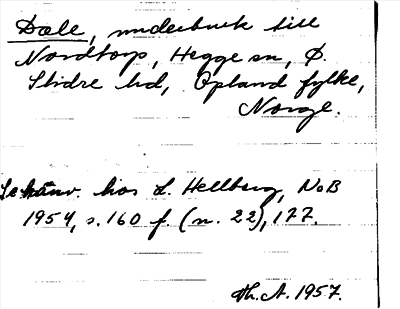 Dale, underbruk till
Nordtorp, Hegge sn, Ø.
Slidre hd, Opland fylke,
Norge.
Se hänv. hos L. Hellberg, NoB
1954, s. 160 f. (n. 22), 177.
Th. A. 1957.